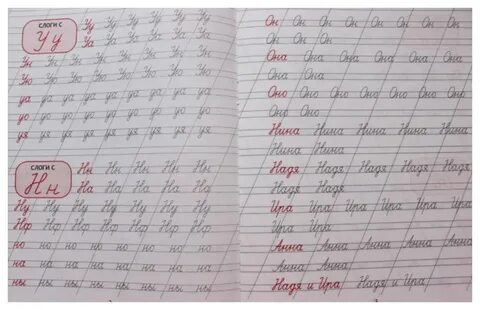 СЛОГИ С
Уу
Уу Уу Уу Уу Уу Уу
Уа Уа Уа Уа Уа Уа
Ун Ун Ун Ун Ун Ун Ун
Ую Ую Ую Ую Ую Ую Ую
уа уа уа уа уа уа уа уа уа
уо уо уо уо уо уо уо уо уо
уя уя уя уя уя уя уя уя уя
СЛОГИ С
Нн
Нн Нн Нн Нн Нн
На На На На На
Ну Ну Ну Ну Ну Ну Ну
Нф Нф Нф Нф Нф Нф Нф
но но но но но но но но
на на на на на на на на
ны ны ны ны ны ны ны ны
Он Он Он Он Он Он Он Он
Он Он Он
Она Она Она Она Она Она
Она Она
Оно Оно Оно Оно Оно Оно Оно
Оно Оно
Нина Нина Нина Нина Нина
Нина Нина
Надя Надя Надя Надя Надя
Надя Надя
Ира Ира Ира Ира Ира Ира
Ира Ира
Анна Анна Анна Анна Анна
Анна Анна
Надя и Ира Надя и Ира